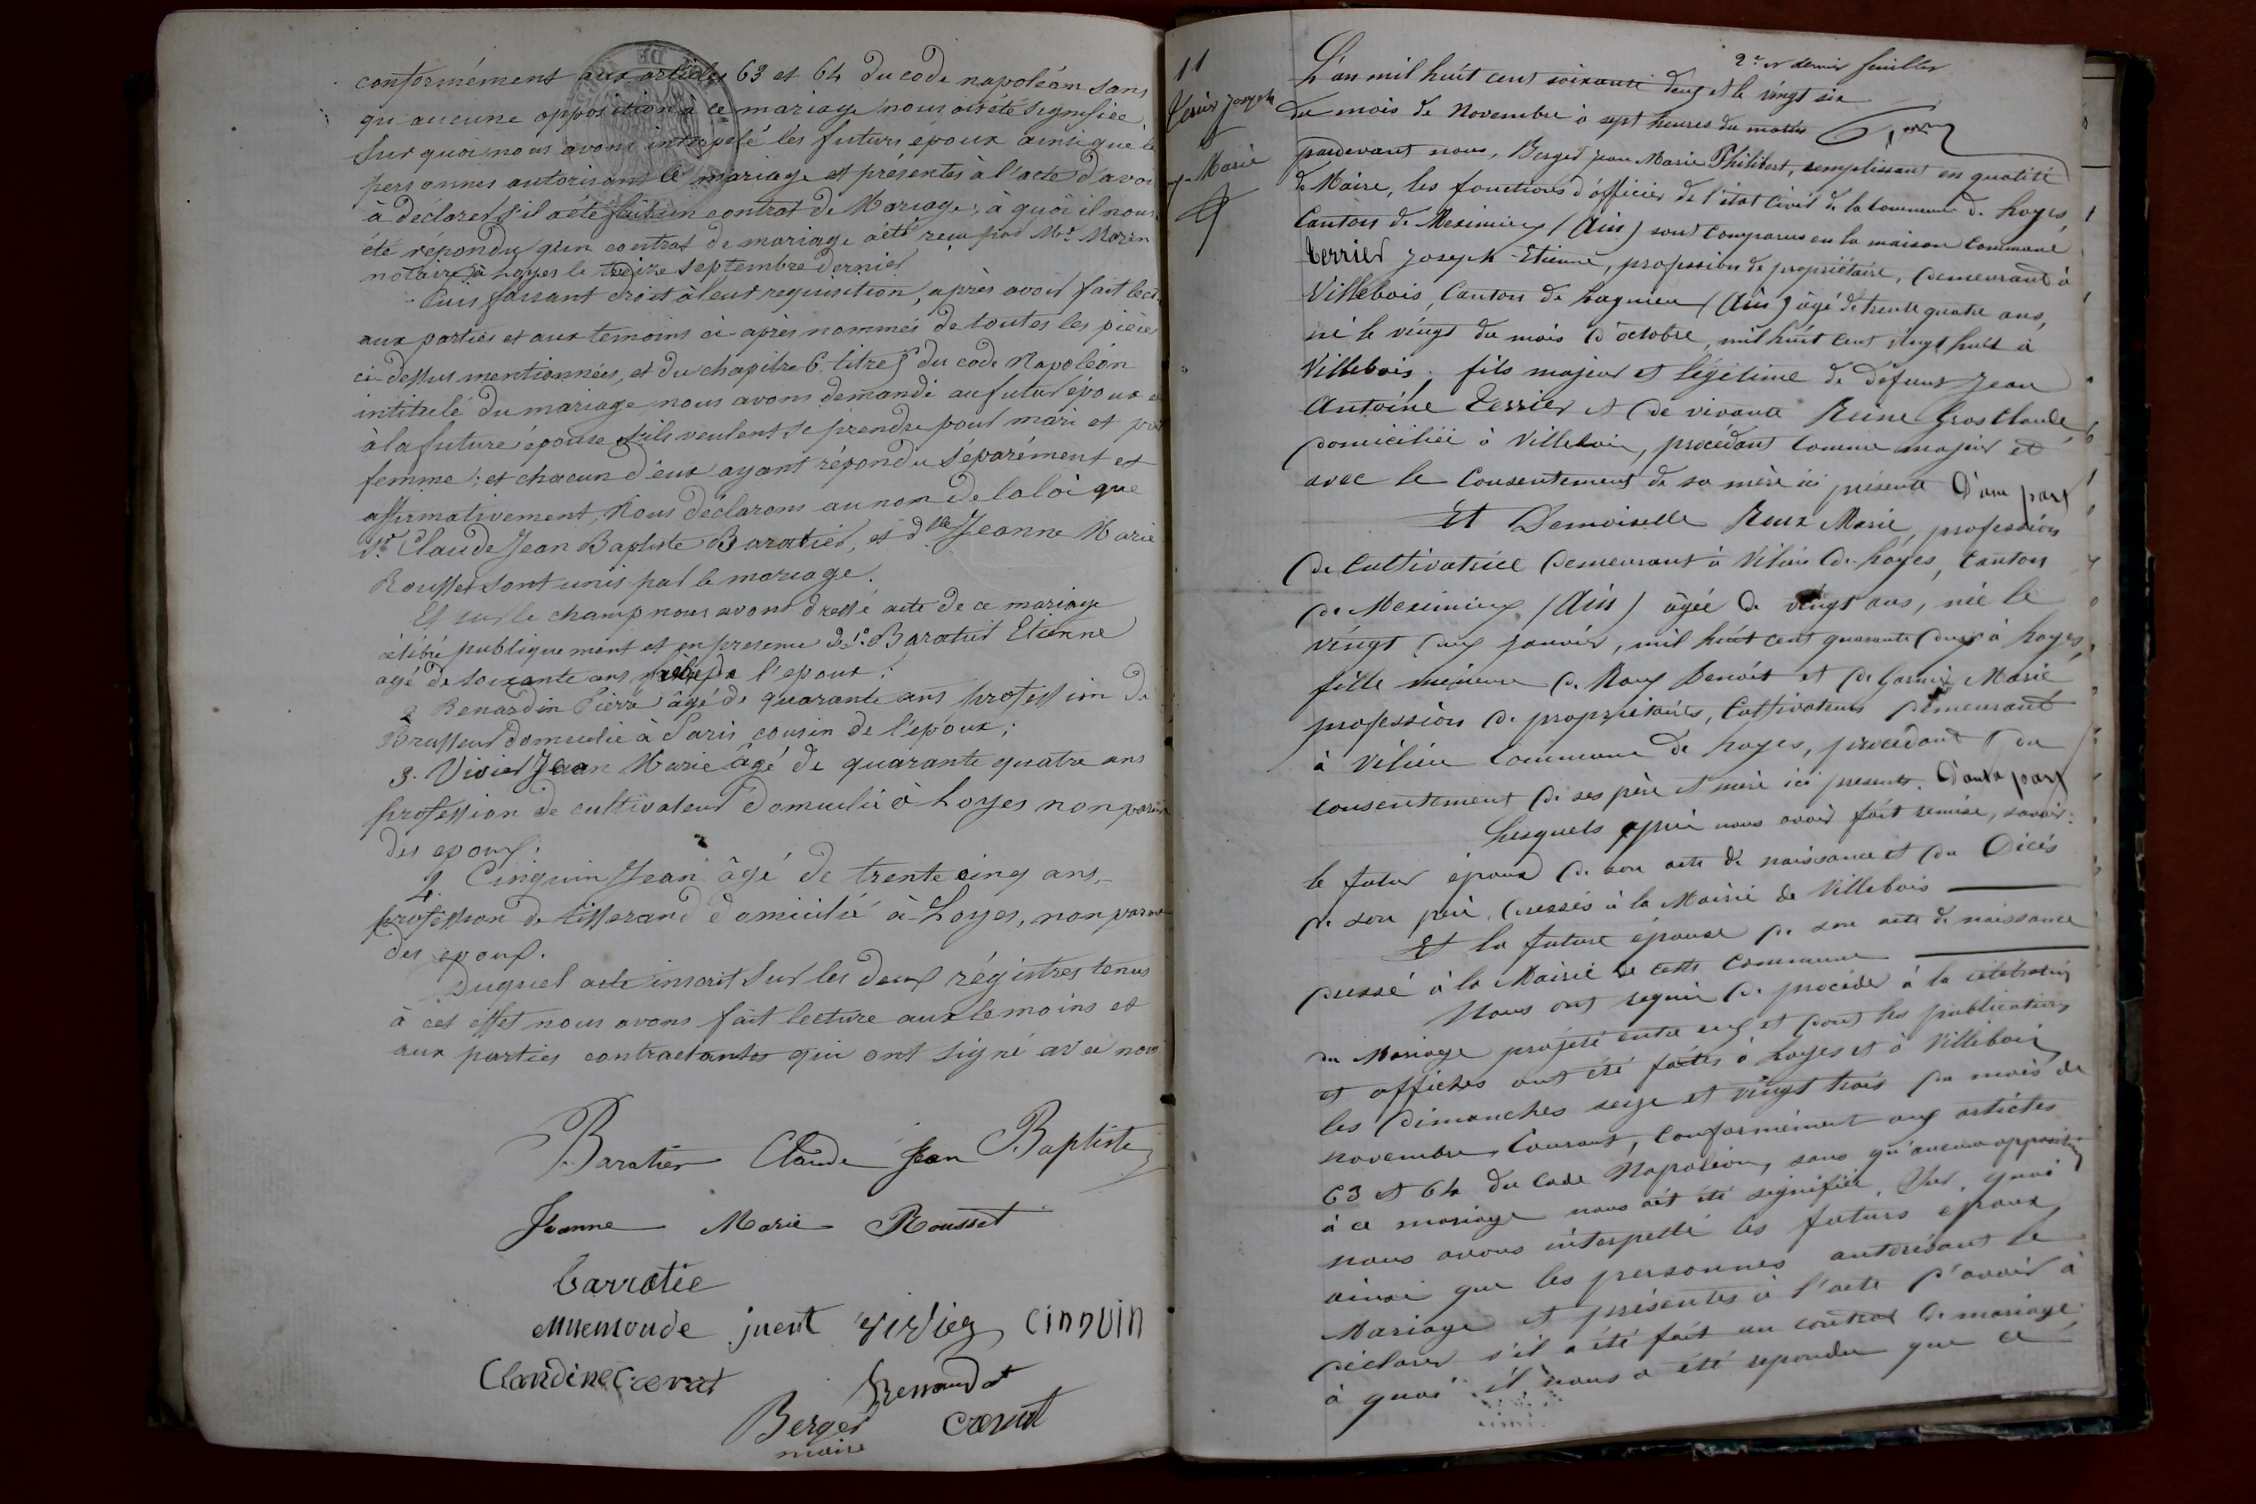 conformément aux articles 63 et 64 du code napoléon sans
qu'aucune opposition à ce mariage nous ait été signifiée
Sur quoi nous avons interpelé les futurs époux ainsi que le
personnes autorisant le mariage et présentes à l'acte d'avoi
à déclarer s'il a été fait un contrat de Mariage; à quoi il nous
été répondu qu'un contrat de mariage a été reçu par Me Morin
notaire à Loyes le treize septembre dernier
Puis faisant droit à leur requisition, après avoir fait lect
aux parties et aux temoins ci-après nommés de toutes les pièces
ci-dessus mentionnées, et du chapitre 6 titre 5 du code Napoléon
intitulé du mariage nous avons demandé au futur époux et
à la future épouse s'ils veulent se prendre pour mari et pour
femme; et chacun d'eux ayant répondu séparément et
affirmativement, Nous déclarons au nom de la loi que
Sr Claude Jean Baptiste Baratier, et dlle Jeanne Marie
Rousset sont unis par le mariage.
Et sur le champ nous avons dressé acte de ce mariage
célébré publiquement et en presence de 1º Baratier Etienne
agé de soixante ans de l'epoux;
2 Renardin Pierre âgé de quarante ans profession de
Brasseur domicilié à Paris cousin de l'époux;
3. Vivier Jean Marie âgé de quarante quatre ans
profession de cultivateur domicilié à Loyes non paren
des epoux;
4. Cinquin Jean âgé de trente cinq ans,
profession de tisserand domicilié à Loyes, non paren
des epoux.
Duquel acte inscrit sur les deux régistres tenus
à cet éffet nous avons fait lecture aux temoins et
aux parties contractantes qui ont signé avec nous
Baratier Claude Jean Baptiste
Jeanne Marie Rousset
barratie
vivier cinquin
Claudine
Renaudat
Berger
maire
2e et dernier feuillet
11
Terrier Joseph
Marie
L'an mil huit cent soixante deux et le vingt six
du mois de Novembre à sept heures du matin
pardevant nous, Berger Jean Marie Philibert, remplissant en qualité
de Maire, les fonctions d'officier de l'état Civil de la Commune de Loyes,
Canton de Meximieux (Ain) sont comparus en la maison Commune
Terrier Joseph-Etienne, profession de propriétaire, demeurant à
Villebois, Canton de Lagnieu (Ain) âgé de trente quatre ans,
né le vingt du mois d'octobre, mil huit cent vingt huit à
Villebois, fils majeur et légitime de défunt Jean
Antoine Terrier et de vivante Reine Grosclaude
domiciliée à Villebois, procédant comme majeur et
avec le Consentement de sa mère ici présente D'une part
Et Demoiselle Reux Marie, profession
de Cultivatrice demeurant à Vilieu de Loyes, Canton
de Meximieux (Ain) âgée de vingt ans, née le
vingt deux janvier, mil huit cent quarante deux à Loyes,
fille mineure de Benoit et de Marie
profession de propriétaires, Cultivateurs demeurant
à Vilieu Commune de Loyes, procédant du
consentement de ses père et mère ici présents. D'autre part
Lesquels après nous avoir fait remise, savoir:
le futur époux de son acte de naissance et du Décès
de son père, dressés à la Mairie de Villebois
Et la future épouse de son acte de naissance
dressé à la Mairie de cette Commune
Nous ont requis de procéder à la célébration
du Mariage projété entre eux et dont les publications
et affiches ont été faites à Loyes et à Villebois
les Dimanches seize et vingt trois du mois de
novembre Courant, Conformément aux articles
63 et 64 du Code Napoléon, sans qu'aucune opposition
à ce mariage nous ait été signifiée, Sur quoi
nous avons interpellé les futurs epoux
ainsi que les personnes autorisant le
Mariage et présentes à l'acte d'avoir à
déclarer s'il a été fait un contrat de mariage
à quoi il nous a été repondu que ce